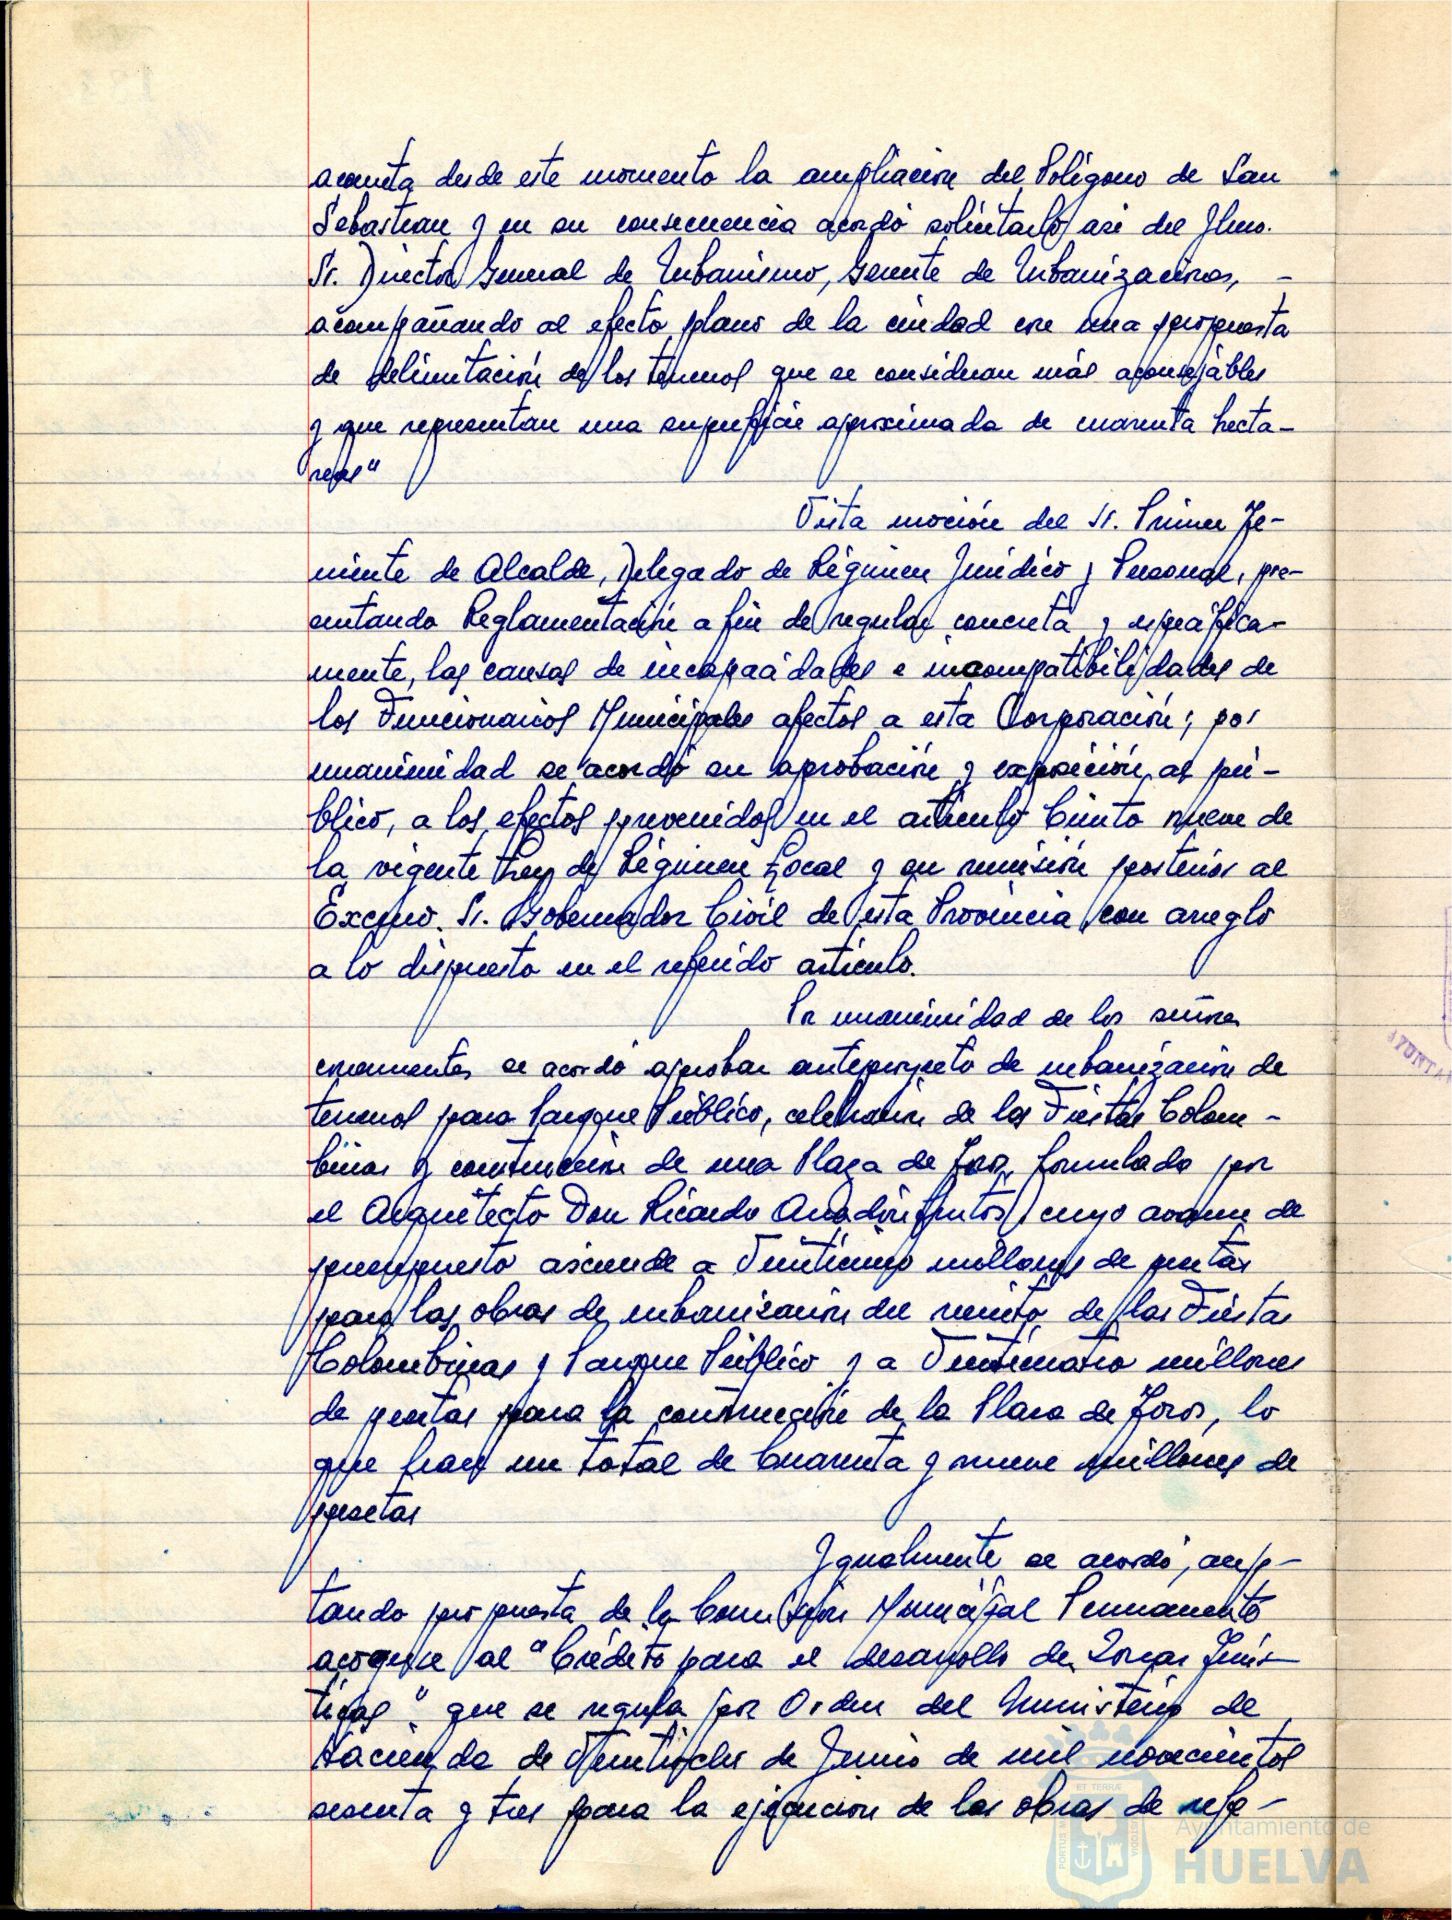 acometa desde este momento la ampliación del Polígono de San
Sebastian y en su consecuencia acordó solicitarlo asi del Ilmo.
Sr. Director General de Urbanismo, Gerente de Urbanizaciones, -
acompañando al efecto plano de la ciudad con una propuesta
de delimitación de los terrenos que se consideran más aconsejables
y que representan una superficie aproximada de cuarenta hecta-
reas"
Vista moción del Sr. Primer Te-
niente de Alcalde, Delegado de Régimen Jurídico y Personal, pre-
sentando Reglamentación a fin de regular concreta y específica-
mente, las causas de incapacidades e incompatibilidades de
los Funcionarios Municipales afectos a esta Corporación; por
unanimidad se acordó su aprobación y exposición al pú-
blico, a los efectos prevenidos en el artículo Ciento nueve de
la vigente Ley de Régimen Local y su remisión posterior al
Excmo. Sr. Gobernador Civil de esta Provincia con arreglo
a lo dispuesto en el referido artículo.
Por unanimidad de los señores
concurrentes se acordó aprobar anteproyecto de urbanización de
terrenos para Parque Público, celebración de las Fiestas Colom-
binas y construcción de una Plaza de Toros, formulado por
el Arquitecto Don Ricardo Anadón Frutos, cuyo avance de
presupuesto asciende a Veinticinco millones de pesetas
para las obras de urbanización del recinto de las Fiestas
Colombinas y Parque Público y a Veinticuatro millones
de pesetas para la construcción de la Plaza de Toros, lo
que hace un total de Cuarenta y nueve millones de
pesetas
Igualmente se acordó, acep-
tando propuesta de la Comisión Municipal Permanente
acogerse al "Crédito para el desarrollo de Zonas Turís-
ticas" que se regula por Orden del Ministerio de
Hacienda de Veintiocho de Junio de mil novecientos
sesenta y tres para la ejecución de las obras de refe-
AYUNTA
ET TERRÆ
PORTUS M
CUSTODIA
Ayuntamiento de
HUELVA